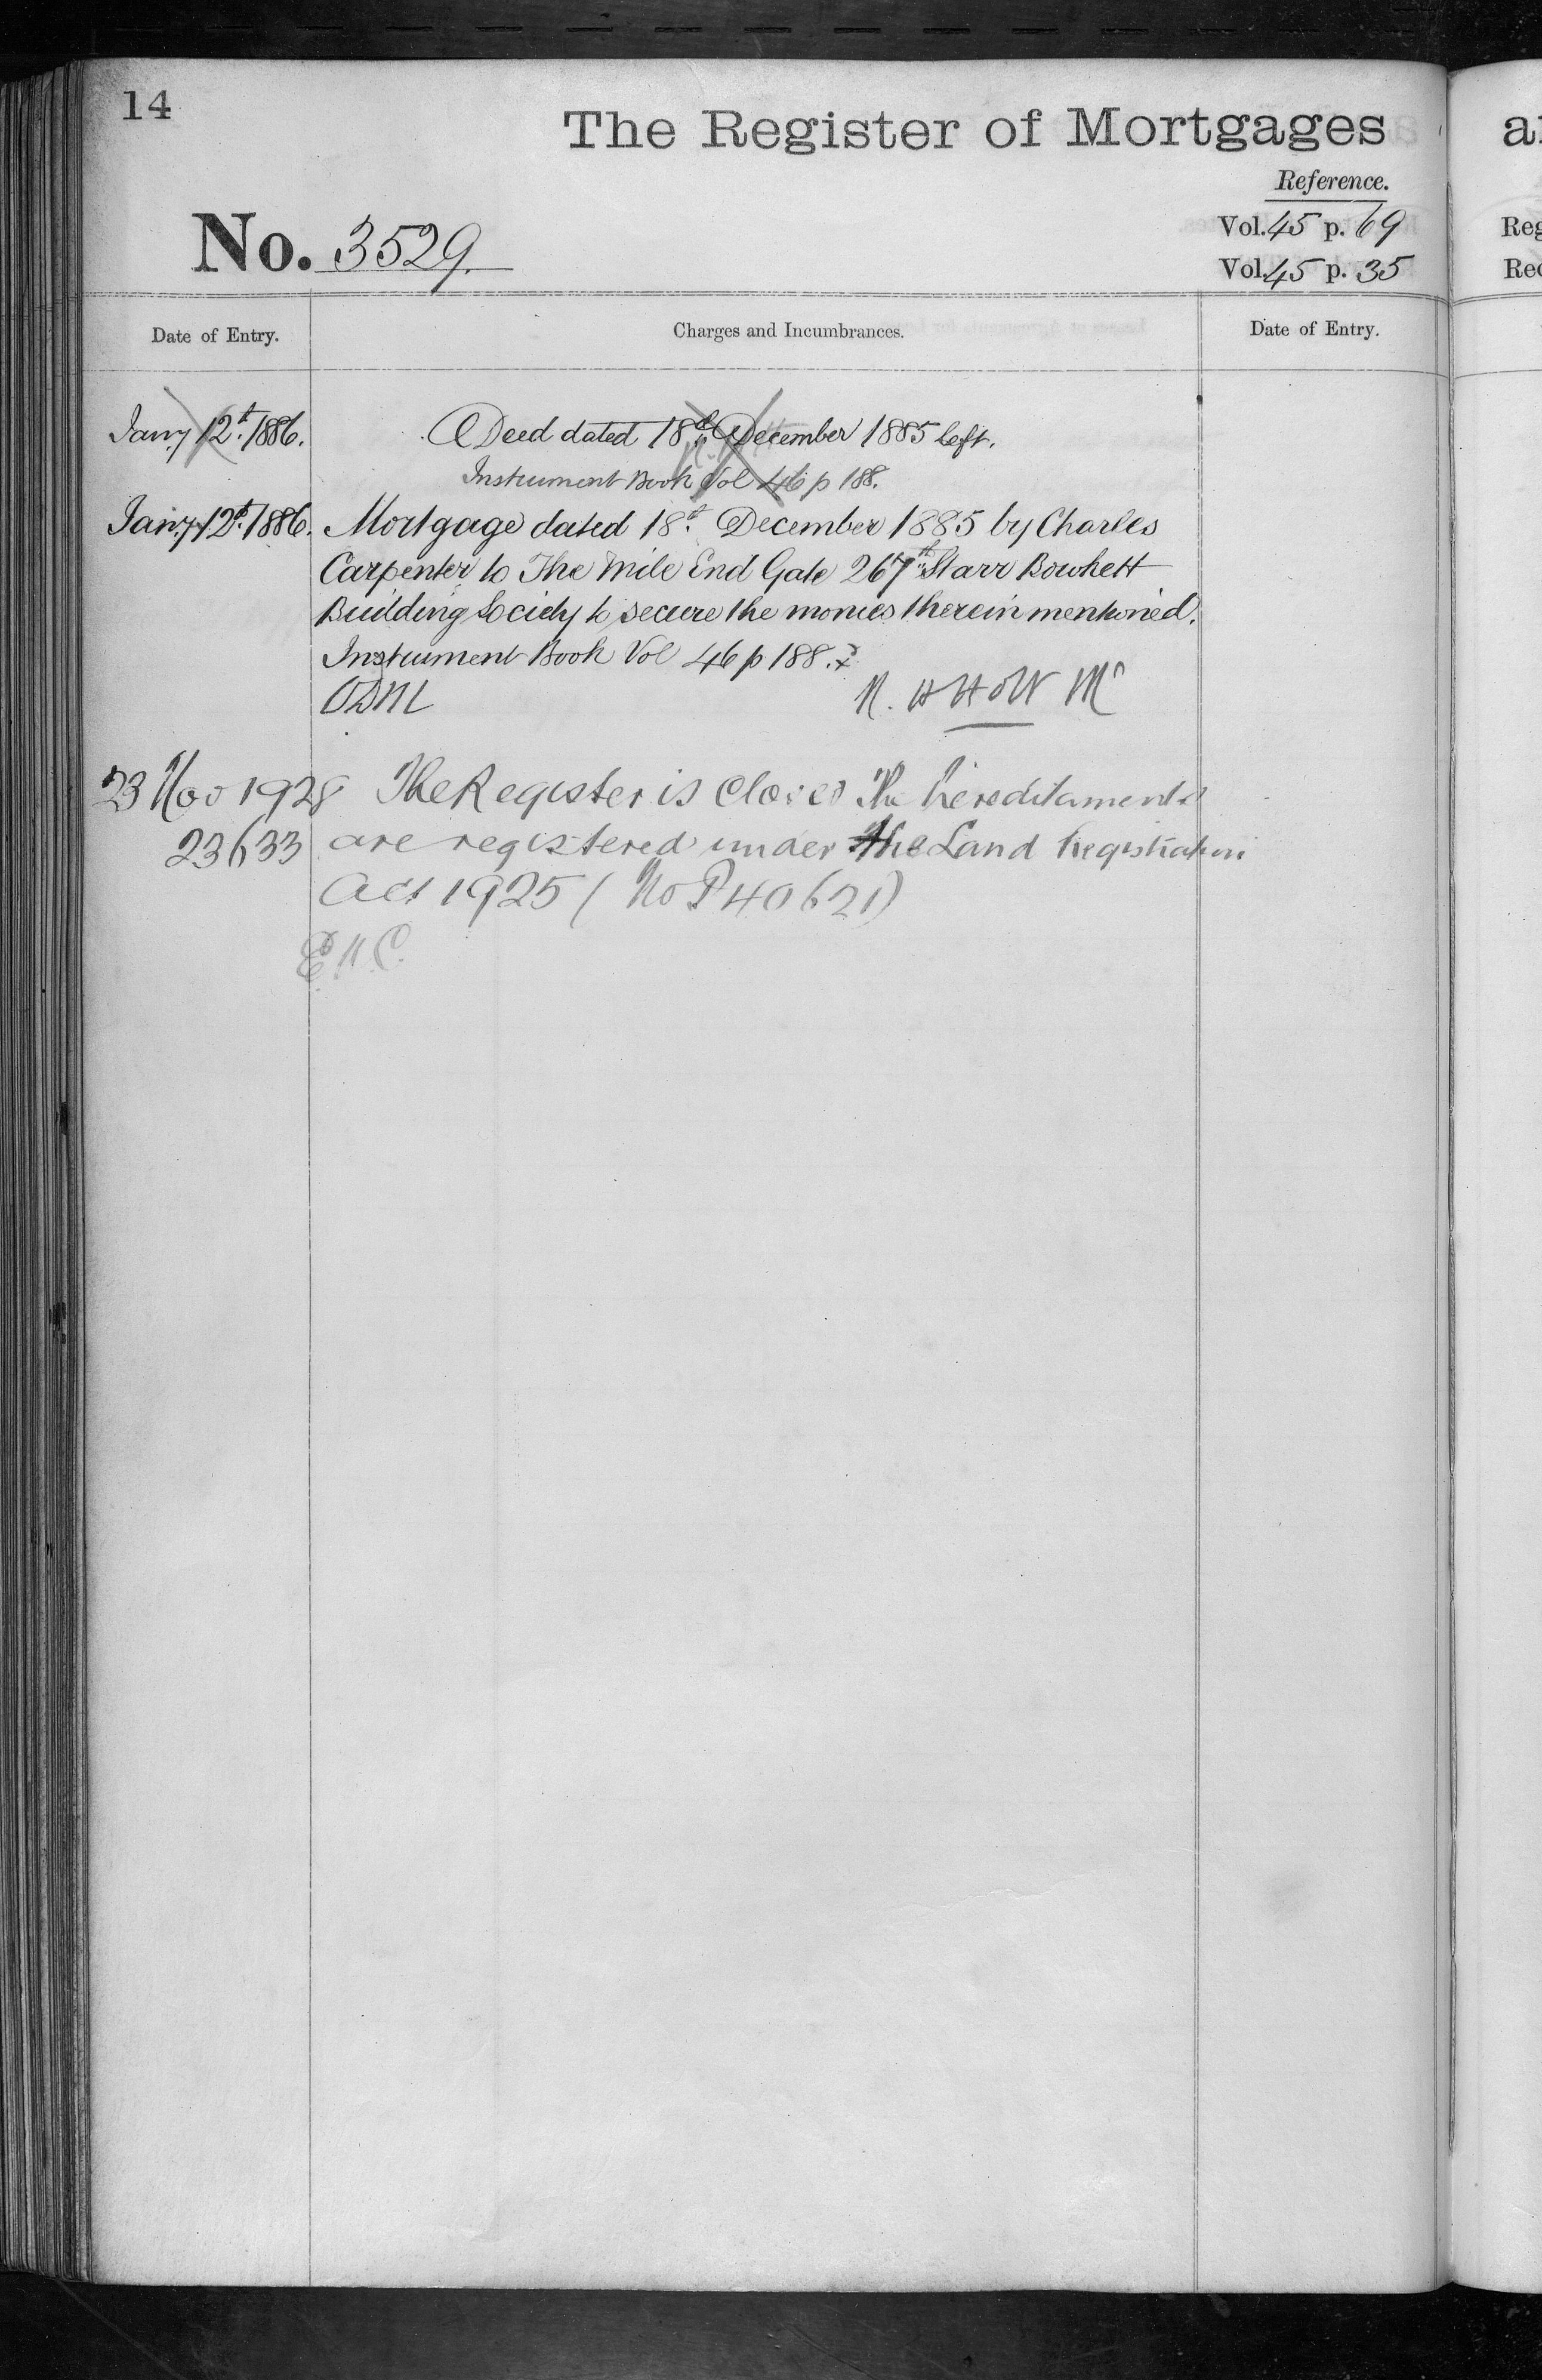 14
The Register of Mortgages
Reference.
No. 3529.
Vol. 45 p. 69
Vol. 45 p. 35
Date of Entry.
Charges and Incumbrances.
Date of Entry.
Jany 12th 1886.
Deed dated 18th December 1885 left.
Instrument Book Vol 46 p 188.
Jany 12th 1886.
Mortgage dated 18th December 1885 by Charles
Carpenter to The Mile End Gate 267th Starr Bowkett
Building Society to secure the monies therein mentioned.
Instrument Book Vol 46 p 188.
23 Nov 1928
The Register is closed The hereditaments
23633
are registered under the Land Registration
Act 1925 (No P40621)
E.H.C.
Reg